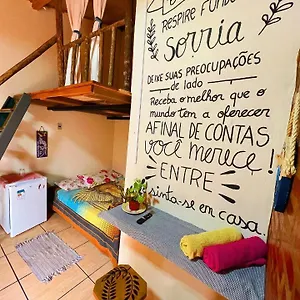 RESPIRE FUNDO
Sorria
DEIXE SUAS PREOCUPAÇÕES
de lado
Receba o melhor que o
mundo tem a oferecer
AFINAL DE CONTAS
você merece!
ENTRE
sinta-se em casa.